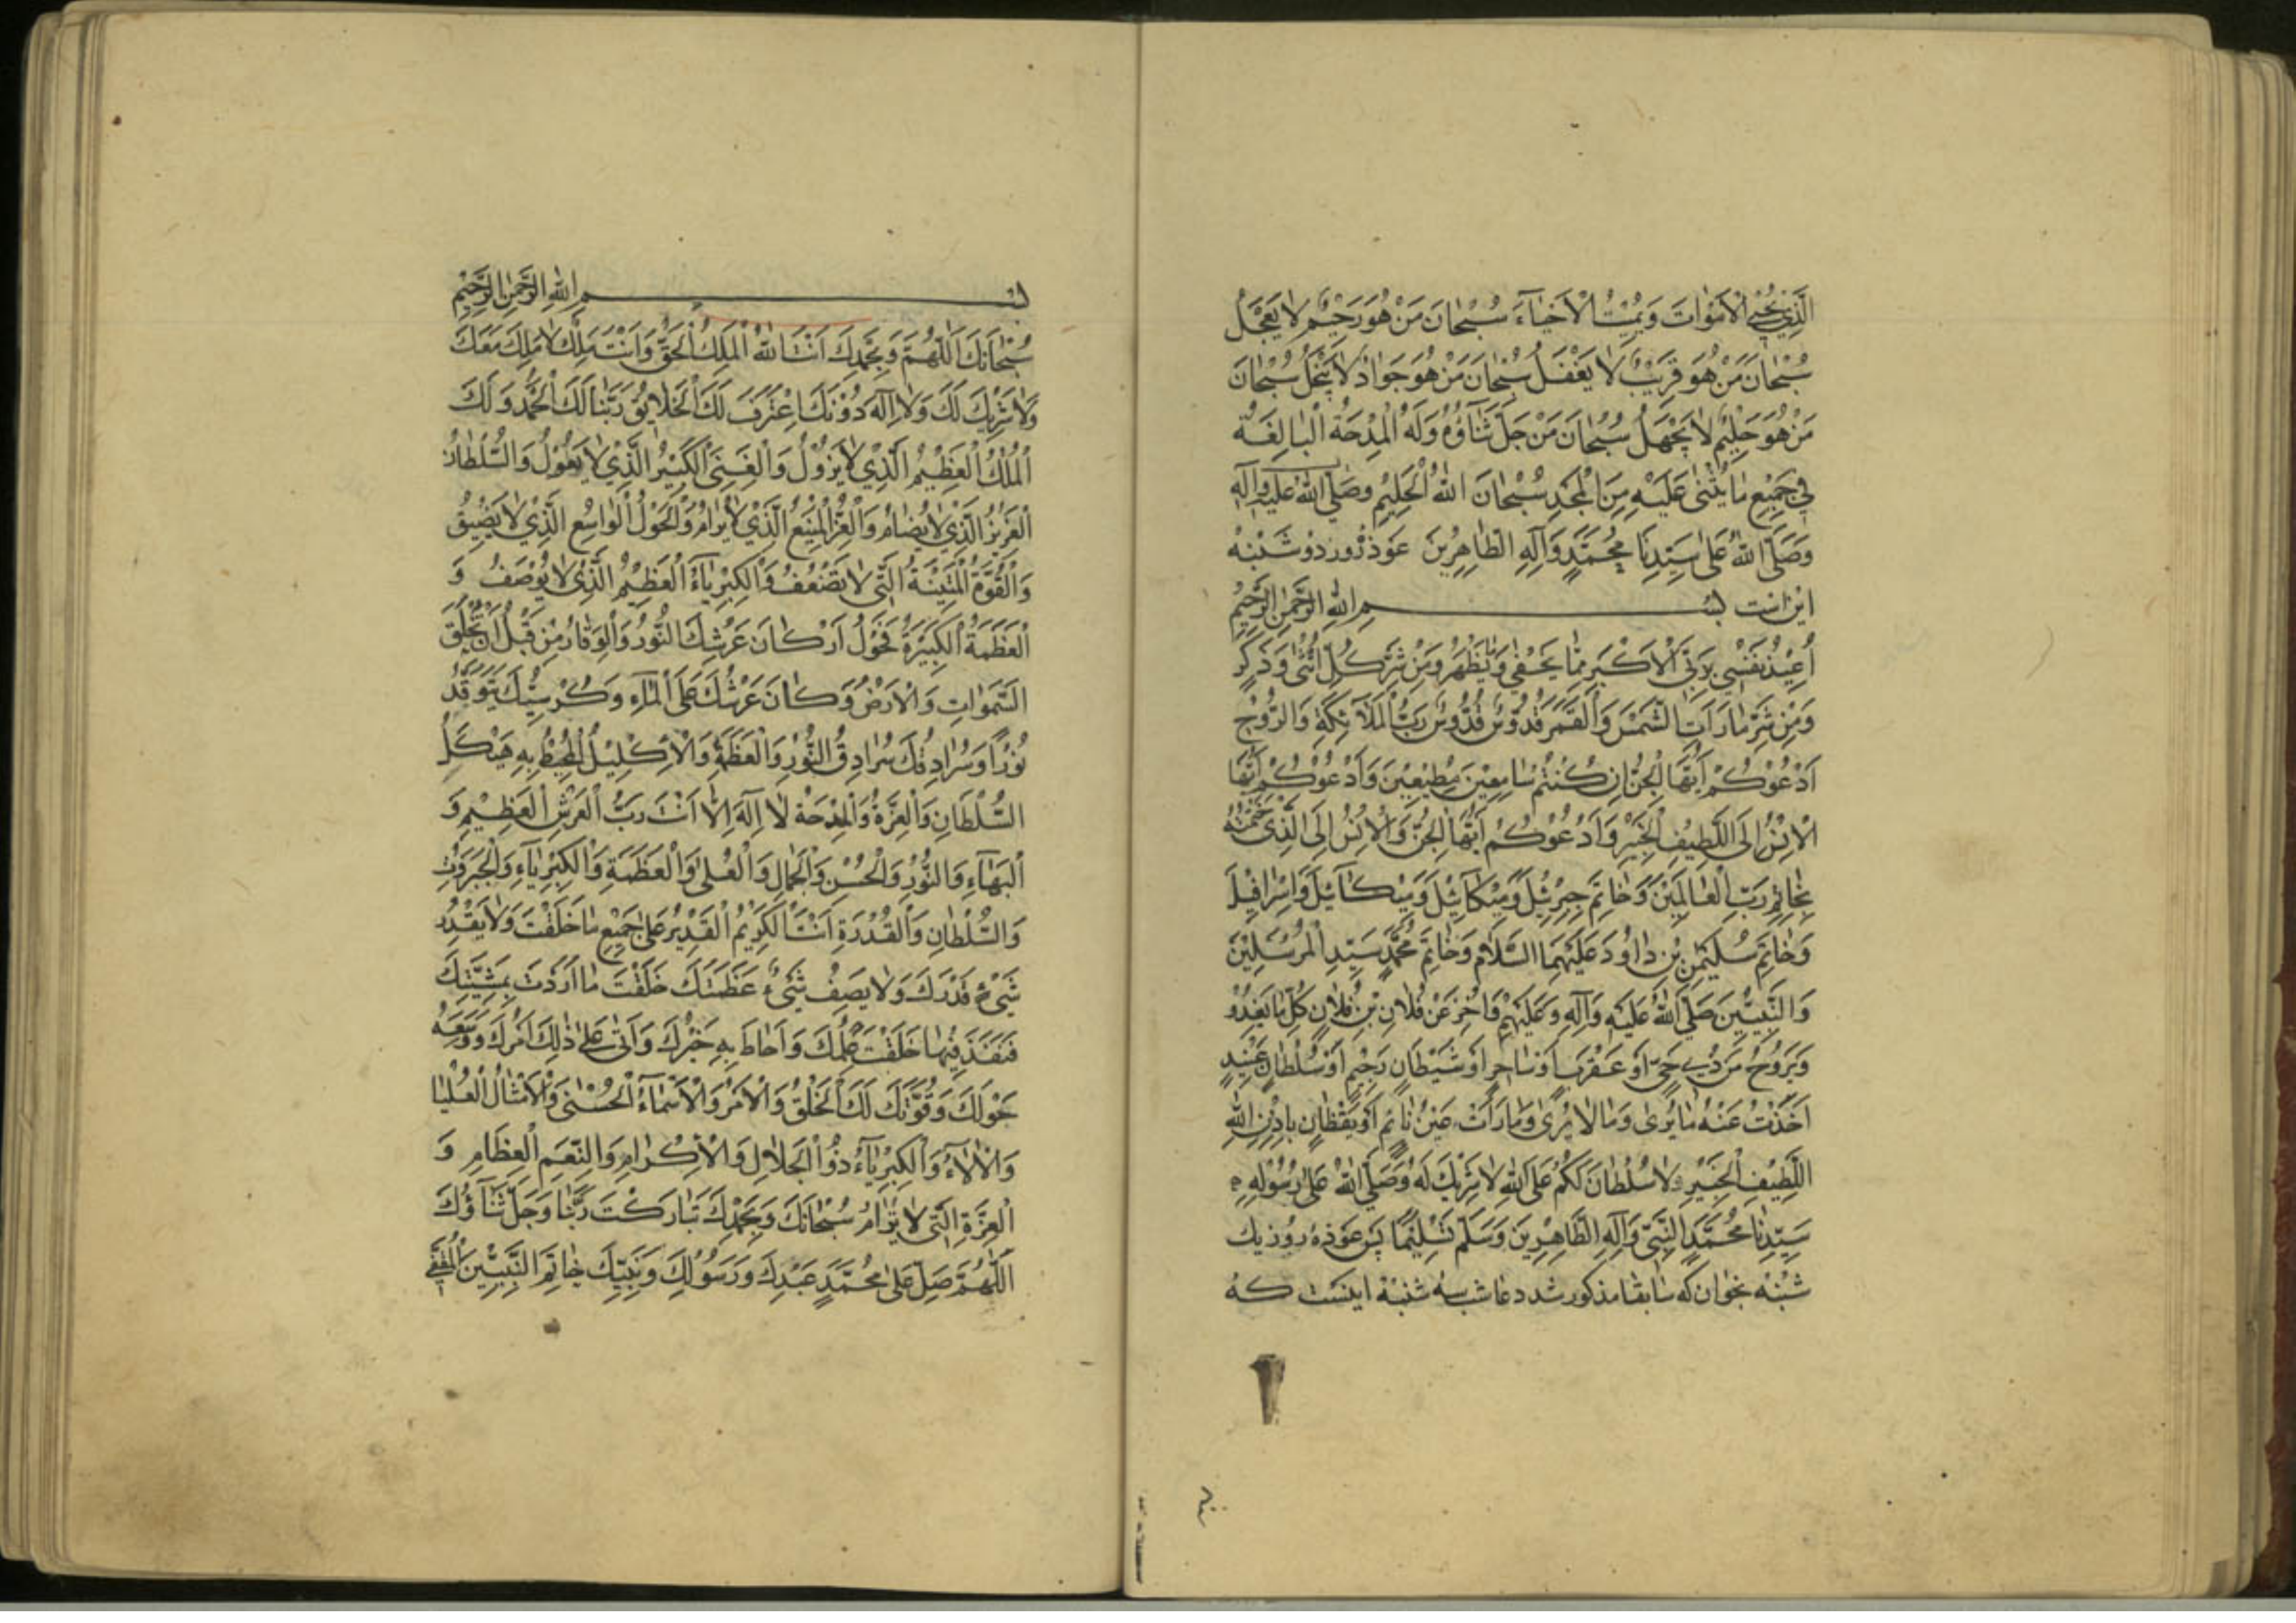 الَّذِي يُحْيِي الْأَمْوَاتَ وَيُمِيتُ الْأَحْيَاءَ سُبْحَانَ مَنْ هُوَ رَحِيمٌ لَا يَعْجَلُ
سُبْحَانَ مَنْ هُوَ قَرِيبٌ لَا يَغْفَلُ سُبْحَانَ مَنْ هُوَ جَوَادٌ لَا يَبْخَلُ سُبْحَانَ
مَنْ هُوَ حَلِيمٌ لَا يَجْهَلُ سُبْحَانَ مَنْ جَلَّ ثَنَاؤُهُ وَلَهُ الْمِدْحَةُ الْبَالِغَةُ
فِي جَمِيعِ مَا يُثْنَى عَلَيْهِ مِنَ الْمَجْدِ سُبْحَانَ اللهِ الْحَلِيمِ وَصَلَّى اللهُ عَلَيْهِ وَآلِهِ
وَصَلَّى اللهُ عَلَى سَيِّدِنَا مُحَمَّدٍ وَآلِهِ الطَّاهِرِينَ عوذ روز دوشنبه
این است بِسْمِ اللهِ الرَّحْمٰنِ الرَّحِيمِ
أُعِيذُ نَفْسِي بِرَبِّيَ الْأَكْبَرِ مِمَّا يَخْفَى وَمَا يَظْهَرُ وَمِنْ شَرِّ كُلِّ أُنْثَى وَذَكَرٍ
وَمِنْ شَرِّ مَا رَأَتِ الشَّمْسُ وَالْقَمَرُ قُدُّوسٌ قُدُّوسٌ رَبُّ الْمَلَائِكَةِ وَالرُّوحِ
أَدْعُوكُمْ أَيُّهَا الْجِنُّ إِنْ كُنْتُمْ سَامِعِينَ مُطِيعِينَ وَأَدْعُوكُمْ أَيُّهَا
الْإِنْسُ إِلَى اللَّطِيفِ الْخَبِيرِ وَأَدْعُوكُمْ أَيُّهَا الْجِنُّ وَالْإِنْسُ إِلَى الَّذِي خَتَمْتُهُ
بِخَاتِمِ رَبِّ الْعَالَمِينَ وَخَاتِمِ جِبْرِئِيلَ وَمِيكَائِيلَ وَمِيكَائِيلَ وَإِسْرَافِيلَ
وَخَاتِمِ سُلَيْمٰنِ بْنِ دَاوُدَ عَلَيْهِمَا السَّلَامُ وَخَاتِمِ مُحَمَّدٍ سَيِّدِ الْمُرْسَلِينَ
وَالنَّبِيِّينَ صَلَّى اللهُ عَلَيْهِ وَآلِهِ وَعَلَيْهِمْ وَاخِرْ عَنْ فُلَانِ بْنِ فُلَانٍ كُلَّ مَا يَغْدُو
وَيَرُوحُ مِنْ ذِي حَيٍّ أَوْ عَقْرَبٍ أَوْ سَاحِرٍ أَوْ شَيْطَانٍ رَجِيمٍ أَوْ سُلْطَانٍ عَنِيدٍ
أَخَذْتُ عَنْهُ مَا يُرَى وَمَا لَا يُرَى وَمَا رَأَتْ عَيْنُ نَائِمٍ أَوْ يَقْظَانٍ بِإِذْنِ اللهِ
اللَّطِيفِ الْخَبِيرِ وَلَا سُلْطَانَ لَكُمْ عَلَى اللهِ لَا شَرِيكَ لَهُ وَصَلَّى اللهُ عَلَى رَسُولِهِ
سَيِّدِنَا مُحَمَّدٍ النَّبِيِّ وَآلِهِ الطَّاهِرِينَ وَسَلَّمَ تَسْلِيمًا پس عوذهٔ روز یک
شنبه بخوان که سابقا مذکور شد دعا شب سه شنبه اینست که
بِسْمِ اللهِ الرَّحْمٰنِ الرَّحِيمِ
سُبْحَانَكَ اللّٰهُمَّ وَبِحَمْدِكَ أَنْتَ اللهُ الْمَلِكُ الْحَقُّ وَأَنْتَ مَلِكٌ لَا مَلِكَ مَعَكَ
وَلَا شَرِيكَ لَكَ وَلَا إِلٰهَ دُونَكَ اعْتَرَفَ لَكَ الْخَلَائِقُ رَبَّنَا لَكَ الْحَمْدُ وَلَكَ
الْمُلْكُ الْعَظِيمُ الَّذِي لَا يَزُولُ وَالْغِنَى الْكَبِيرُ الَّذِي لَا يَعُولُ وَالسُّلْطَانُ
الْعَزِيزُ الَّذِي لَا يُضَامُ وَالْعِزُّ الْمَنِيعُ الَّذِي لَا يُرَامُ وَالْحَوْلُ الْوَاسِعُ الَّذِي لَا يَضِيقُ
وَالْقُوَّةُ الْمَتِينَةُ الَّتِي لَا تَضْعُفُ وَالْكِبْرِيَاءُ الْعَظِيمُ الَّذِي لَا يُوصَفُ وَ
الْعَظَمَةُ الْكَبِيرَةُ فَحَوْلَ أَرْكَانِ عَرْشِكَ النُّورُ وَالْوَقَارُ مِنْ قَبْلِ أَنْ تَخْلُقَ
السَّمٰوَاتِ وَالْأَرْضَ وَكَانَ عَرْشُكَ عَلَى الْمَاءِ وَكُرْسِيُّكَ يَتَوَقَّدُ
نُورًا وَسُرَادِقُكَ سُرَادِقُ النُّورِ وَالْعَظَمَةِ وَالْإِكْلِيلُ الْمُحِيطُ بِهِ هَيْكَلُ
السُّلْطَانِ وَالْعِزَّةُ وَالْمِدْحَةُ لَا إِلٰهَ إِلَّا أَنْتَ رَبُّ الْعَرْشِ الْعَظِيمِ وَ
الْبَهَاءِ وَالنُّورِ وَالْحُسْنِ وَالْجَمَالِ وَالْعُلَى وَالْعَظَمَةِ وَالْكِبْرِيَاءِ وَالْجَبَرُوتِ
وَالسُّلْطَانِ وَالْقُدْرَةِ أَنْتَ الْكَرِيمُ الْقَدِيرُ عَلَى جَمِيعِ مَا خَلَقْتَ وَلَا يَقْدِرُ
شَيْءٌ قَدْرَكَ وَلَا يَصِفُ شَيْءٌ عَظَمَتَكَ خَلَقْتَ مَا أَرَدْتَ بِمَشِيَّتِكَ
فَنَفَذَ فِيمَا خَلَقْتَ عِلْمُكَ وَأَحَاطَ بِهِ خُبْرُكَ وَأَتَى عَلَى ذٰلِكَ أَمْرُكَ وَوَسِعَهُ
حَوْلُكَ وَقُوَّتُكَ لَكَ الْخَلْقُ وَالْأَمْرُ وَالْأَسْمَاءُ الْحُسْنَى وَالْأَمْثَالُ الْعُلْيَا
وَالْآلَاءُ وَالْكِبْرِيَاءُ ذُو الْجَلَالِ وَالْإِكْرَامِ وَالنِّعَمِ الْعِظَامِ وَ
الْعِزَّةِ الَّتِي لَا تُرَامُ سُبْحَانَكَ وَبِحَمْدِكَ تَبَارَكْتَ رَبَّنَا وَجَلَّ ثَنَاؤُكَ
اللّٰهُمَّ صَلِّ عَلَى مُحَمَّدٍ عَبْدِكَ وَرَسُولِكَ وَنَبِيِّكَ خَاتِمِ النَّبِيِّينَ الْمُقَفَّى